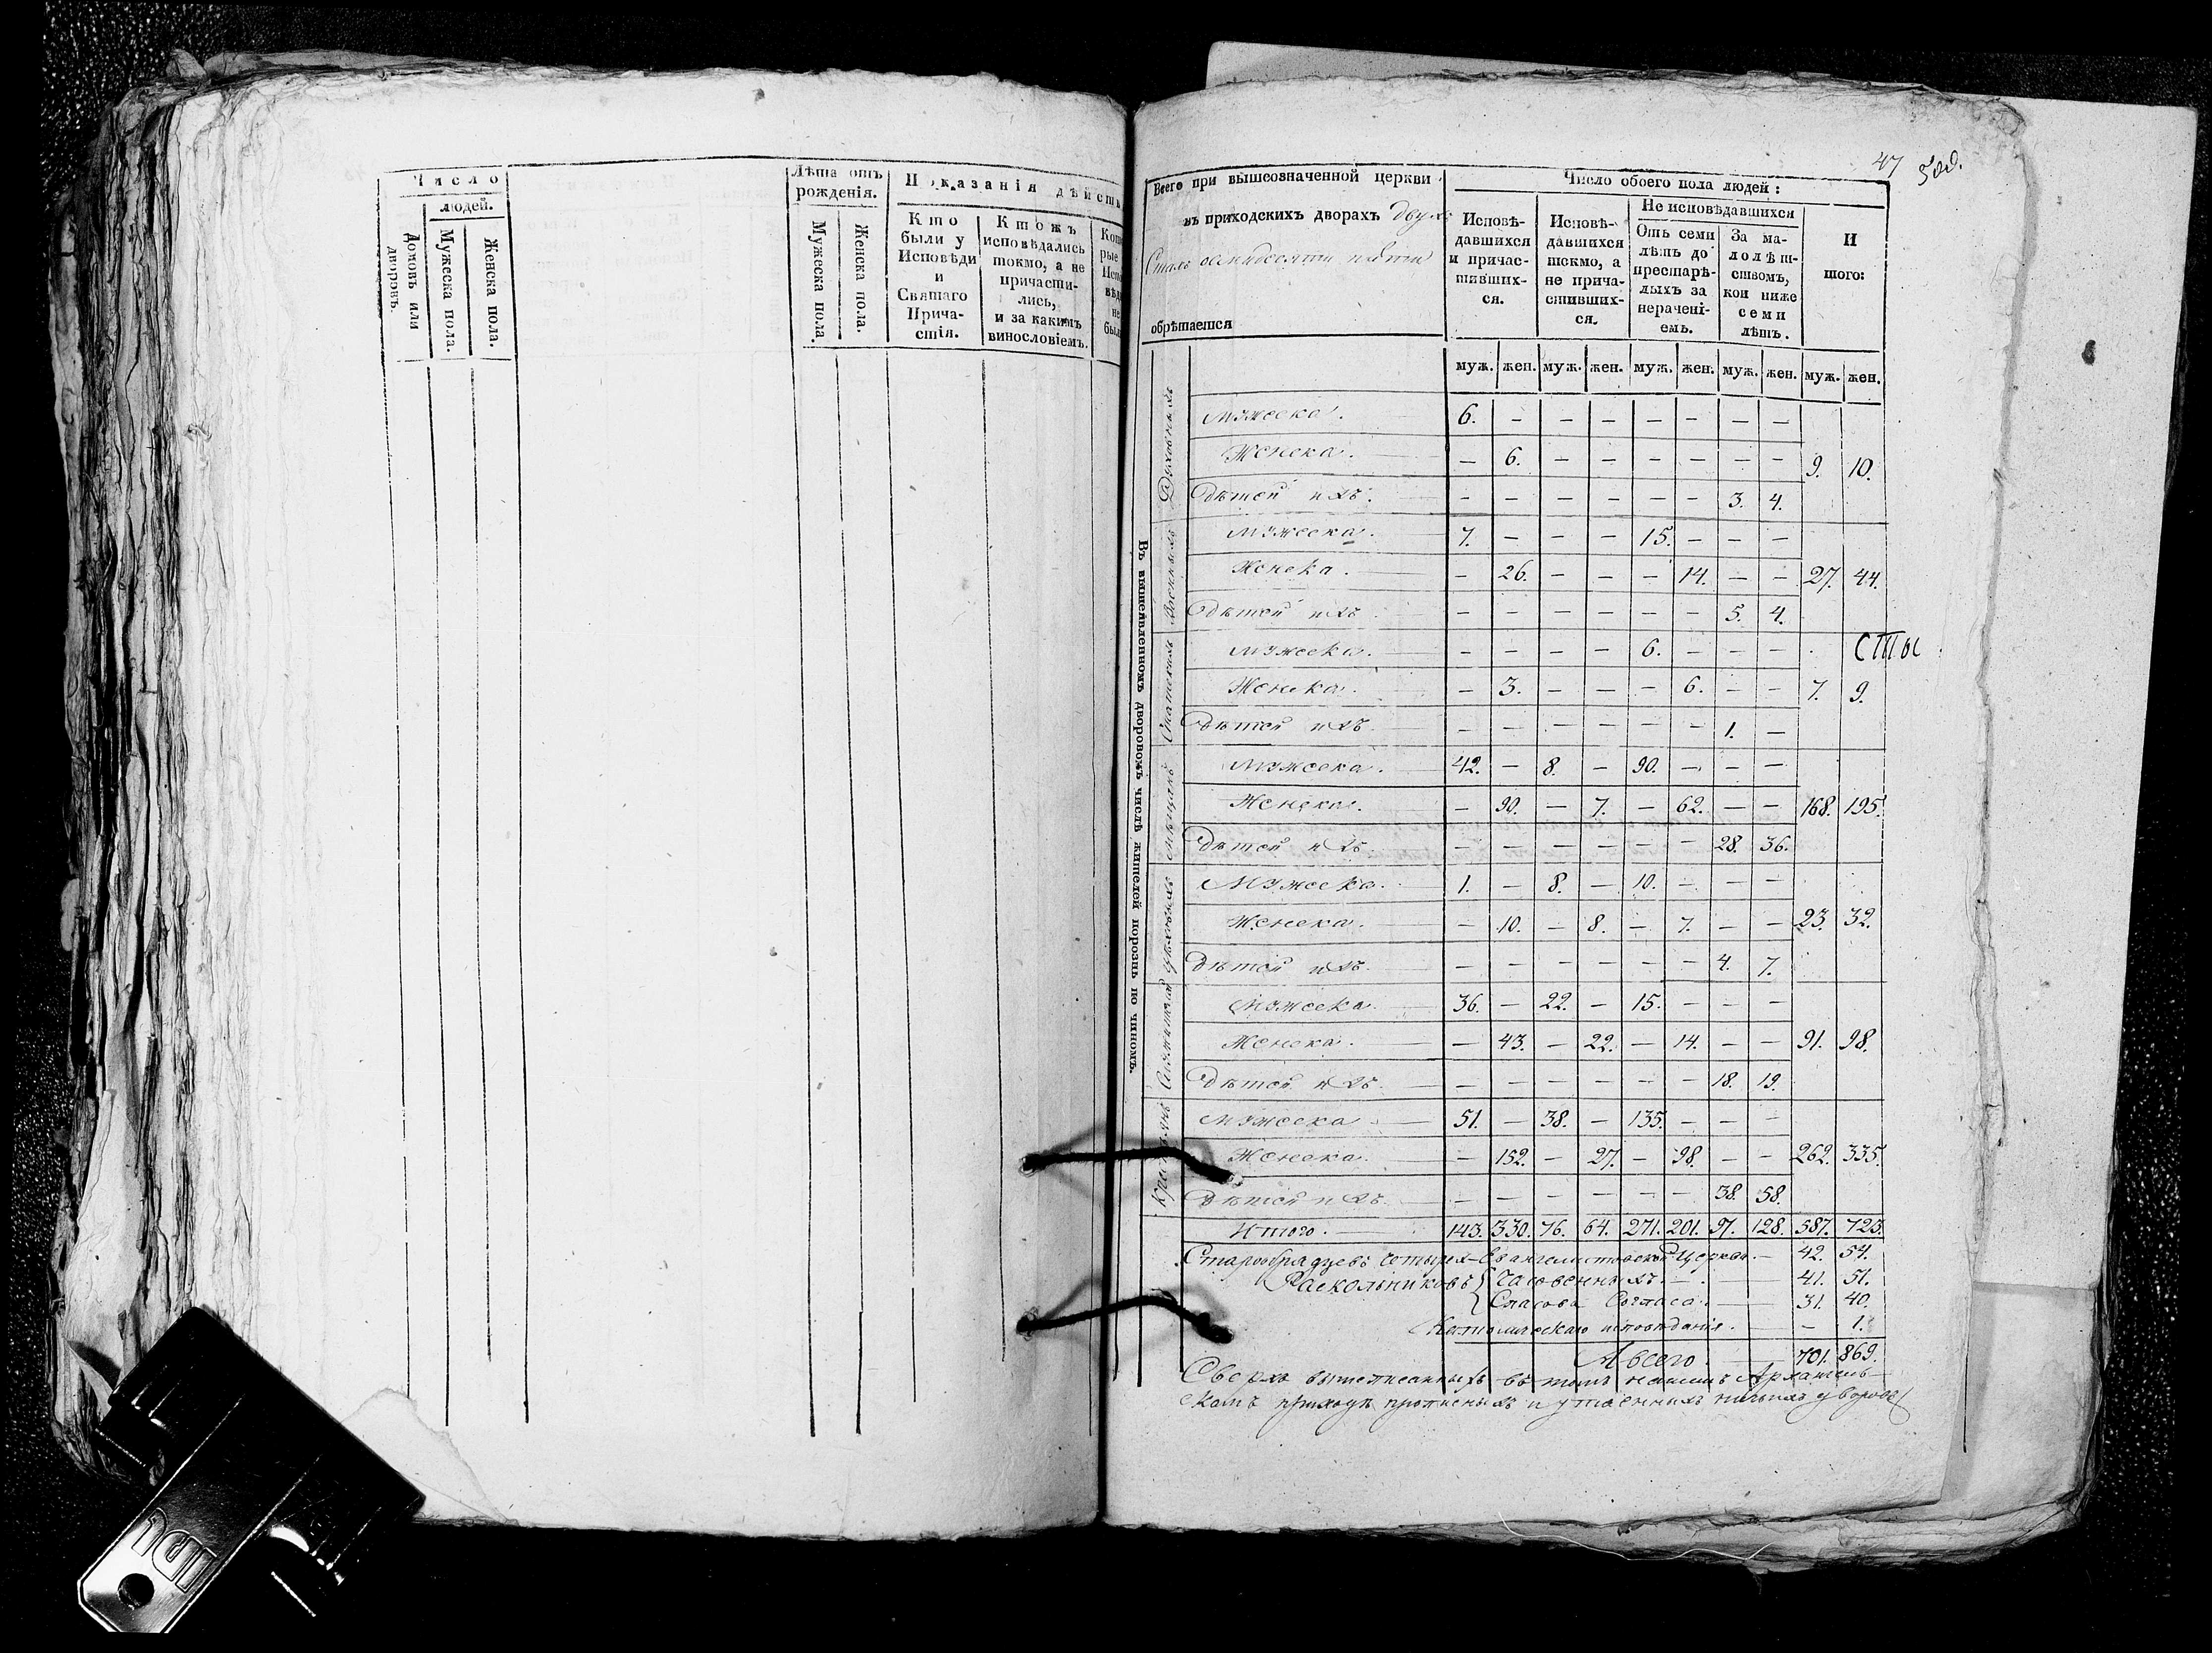 Число
людей.
Домовъ или дворовъ.
Мужеска пола.
Женска пола.
Лѣта отъ рожденія.
Мужеска пола.
Женска пола.
Показанія дѣйств
Кто были у Исповѣди и Святаго Причастія.
Ктожъ исповѣдались токмо, а не причастились, и за какимъ винословіемъ.
47
Всего при вышеозначенной церкви
въ приходскихъ дворахъ двухъ
Стахъ осмидесяти пяти
обрѣтается
Число обоего пола людей:
Исповѣ-
давшихся
и причас-
тивших-
ся.
Исповѣ-
давшихся
токмо, а
не прича-
стивших-
ся.
Не исповѣдавшихся
Отъ семи
лѣтъ до
престарѣ-
лыхъ за
нерачені-
емъ.
За ма-
лолѣт-
ствомъ,
кои ниже
семи
лѣтъ.
И
того:
муж. жен. муж. жен. муж. жен. муж. жен. муж. жен.
Въ вышеявленномъ дворовомъ числѣ жителей порознь по чиномъ.
Духовныхъ
Мужеска. 6. – – – – – – –
Женска. – 6. – – – – – – 9. 10.
Дѣтей ихъ. – – – – – – 3. 4.
Военныхъ
Мужеска. 7. – – – 15. – – –
Женска. – 26. – – – 14. – – 27. 44.
Дѣтей ихъ – – – – – – 5. 4.
Статскихъ
Мужеска. – – – – 6. – – –
Женска. – 3. – – – 6. – – 7. 9.
Дѣтей ихъ – – – – – – 1. –
Мѣщанъ
Мужеска. 42. – 8. – 90. – – –
Женска. – 90. – 7. – 62. – – 168. 195.
Дѣтей ихъ. – – – – – – 28. 36.
Цѣховыхъ
Мужеска. 1. – 8. – 10. – – –
Женска. – 10. – 8. – 7. – – 23. 32.
Дѣтей ихъ. – – – – – – 4. 7.
Служителей
Мужеска. 36. – 22. – 15. – – –
Женска. – 43. – 22. – 14. – – 91. 98.
Дѣтей ихъ. – – – – – – 18. 19.
Крестьянъ
Мужеска 51. – 38. – 135. – – –
Женска. – 152. – 27. – 98. – – 262. 335.
Дѣтей ихъ. – – – – – – 38. 58.
Итого. 143. 330. 76. 64. 271. 201. 97. 128. 587. 723.
Старообрядцевъ Четырех-Евангелистовской Церкви. – 42. 54.
Раскольниковъ { Часовенныхъ. – 41. 51.
{ Спасова Согласа. – 31. 40.
Католическаго исповѣданія. – – 1.
А всего. – 701. 869.
Сверхъ вышеписанныхъ въ томъ нашемъ Архангель-
скомъ приходѣ прописныхъ и утаенныхъ